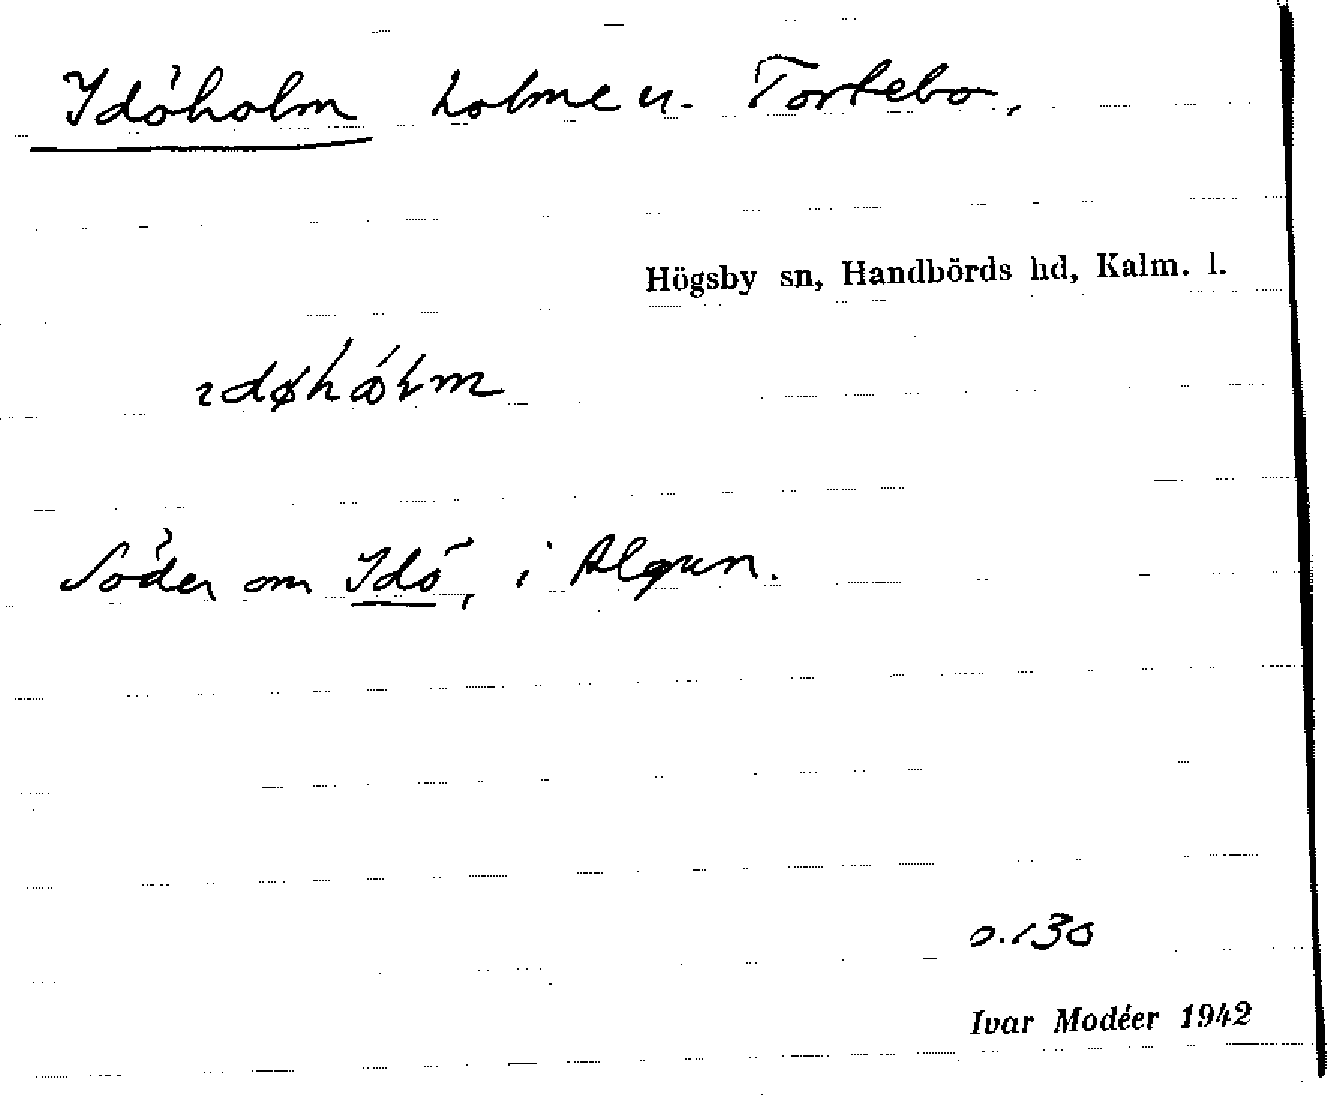 Idöholm holme u. Tortebo.
Högsby sn, Handbörds hd, Kalm. l.
ıdøhólm
Söder om Idö, i Algun.
o. 130
Ivar Modéer 1942